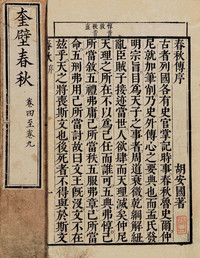 春秋傳序
胡安國著
古者列國各有史官掌記時事春秋魯史爾仲
尼就加筆削乃史外傳心之要典也而孟氏發
明宗旨目為天子之事者周道衰微乾綱解紐
亂臣賊子接迹當世人欲肆而天理滅矣仲尼
天理之所在不以為己任而誰可五典弗惇己
所當敘五禮弗庸己所當秩五服弗章己所當
命五刑弗用己所當討故曰文王既沒文不在
茲乎天之將喪斯文也後死者不得與於斯文
奎璧春秋
卷四至卷九